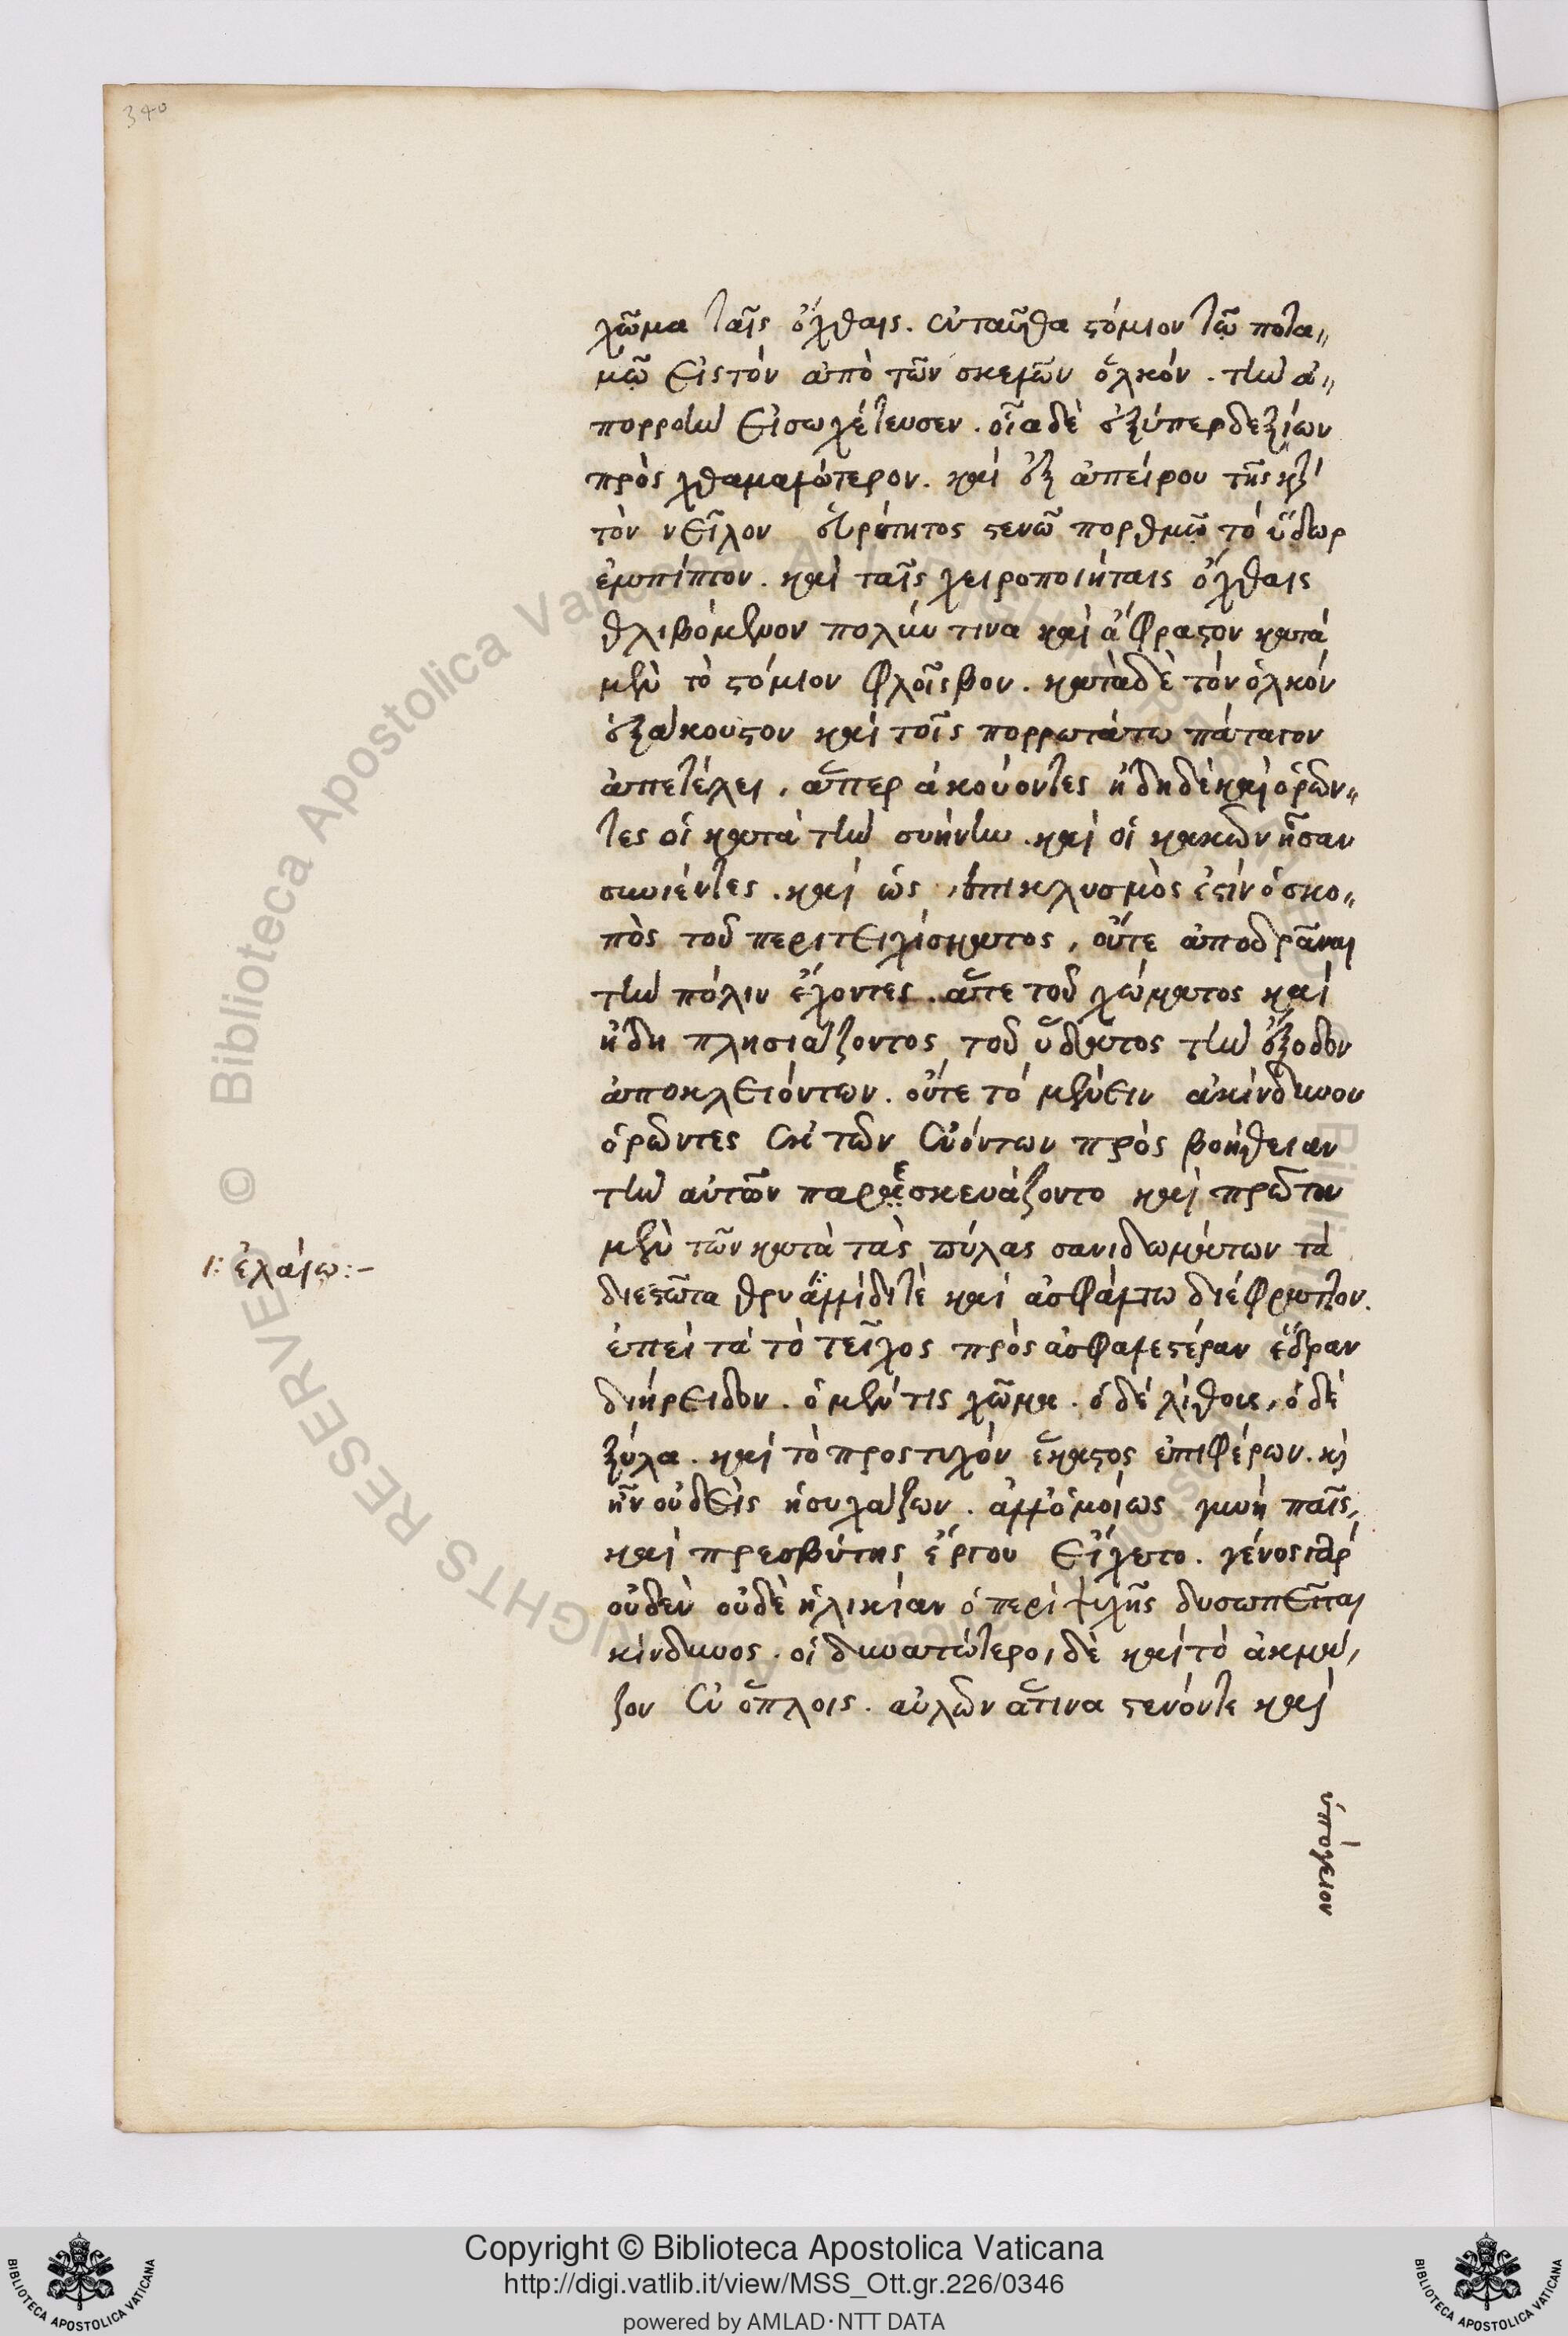 340
χῶμα ταῖς ὄχθαις. ἐνταῦθα στόμιον τῷ ποτα-
μῷ εἰς τὸν ἀπὸ τῶν σκελῶν ὁλκόν. τὴν ἀ-
πορροὴν εἰσωχέτευσεν. οἷα δὲ ἐξ ὑπερδεξίων
πρὸς χθαμαλώτερον. καὶ ἐξ ἀπείρου τῆς κατὰ
τὸν νεῖλον εὐρύτητος στενῷ πορθμῷ τὸ ὕδωρ
ἐμπίπτον. καὶ ταῖς χειροποιήταις ὄχθαις
θλιβόμενον πολύν τινα καὶ ἄφραστον κατὰ
μὲν τὸ στόμιον φλοῖσβον. κατὰ δὲ τὸν ὁλκὸν
ἐξάκουστον καὶ τοῖς πορρωτάτω πάταγον
ἀπετέλει, ἅπερ ἀκούοντες ἤδη δὲ καὶ ὁρῶν-
τες οἱ κατὰ τὴν συήνην. καὶ οἱ κακῶν ἦσαν
συνιέντες. καὶ ὡς ἐπικλυσμὸς ἐστὶν ὁ σκο-
πὸς τοῦ περιτειχίσματος, οὔτε ἀποδρᾶναι
τὴν πόλιν ἔχοντες. ἅτε τοῦ χώματος καὶ
ἤδη πλησιάζοντος τοῦ ὕδατος τὴν ἔξοδον
ἀποκλειόντων. οὔτε τὸ μένειν ἀκίνδυνον
ὁρῶντες ἐκ τῶν ἐνόντων πρὸς βοήθειαν
τὴν αὐτῶν παρεσκευάζοντο καὶ πρῶτον
μὲν τῶν κατὰ τὰς πύλας σανιδωμάτων τὰ
διεστῶτα θρυαλλίδι τὲ καὶ ἀσφάλτω διέφραττον.
ἐπεί τα τὸ τεῖχος πρὸς ἀσφαλεστέραν ἕδραν
διήρειδον. ὁ μέν τις χῶμα. ὁ δὲ λίθους, ὁ δὲ
ξύλα. καὶ τὸ προστυχὸν ἕκαστος ἐπιφέρων. καὶ
ἦν οὐδεὶς ἡσυχάζων. ἀλλ' ὁμοίως γυνὴ παῖς,
καὶ πρεσβύτης ἔργου εἴχετο. γένος γὰρ
οὐδὲν οὐδὲ ἡλικίαν ὁ περὶ ψυχῆς δυσωπεῖται
κίνδυνος. οἱ δυνατώτεροι δὲ καὶ τὸ ἀκμά-
ζον ἐν ὅπλοις. αὐλῶν ἅτινα στενόν τε καὶ
ὑπόγειον
/: ἐλαίω:-
Copyright © Biblioteca Apostolica Vaticana
http://digi.vatlib.it/view/MSS_Ott.gr.226/0346
powered by AMLAD·NTT DATA
BIBLIOTECA APOSTOLICA VATICANA
BIBLIOTECA APOSTOLICA VATICANA